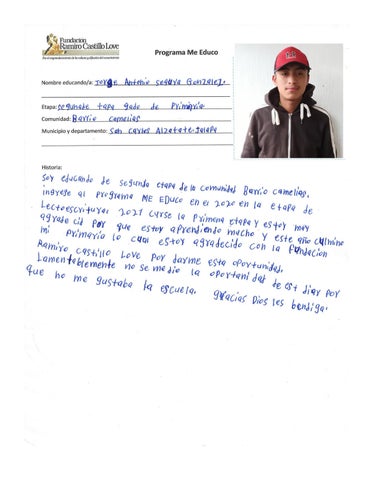 Fundación
Ramiro Castillo Love
Programa Me Educo
Nombre educando/a: Jorge Antonio segura Gonzalez.
Etapa: segunda etapa gado de Primaria
Comunidad: Barrio camelias
Municipio y departamento: San carlos Alzatate-Jalapa
Historia:
Soy educando de segunda etapa de la comunidad Barrio Camelias.
ingrese al programa ME EDuco en el 2020 en la etapa de
Lectoescritura. 2021 curse la Primera etapa y estoy muy
agradecid por que estoy aprendiendo mucho y este año culmino
mi Primaria lo cual estoy agradecido con la Fundacion
Ramiro Castillo Love por darme esta oportunidad.
Lamentablemente no se me dio la oportanidat de est diar por
que no me gustaba la escuela. gracias Dios les bendiga.